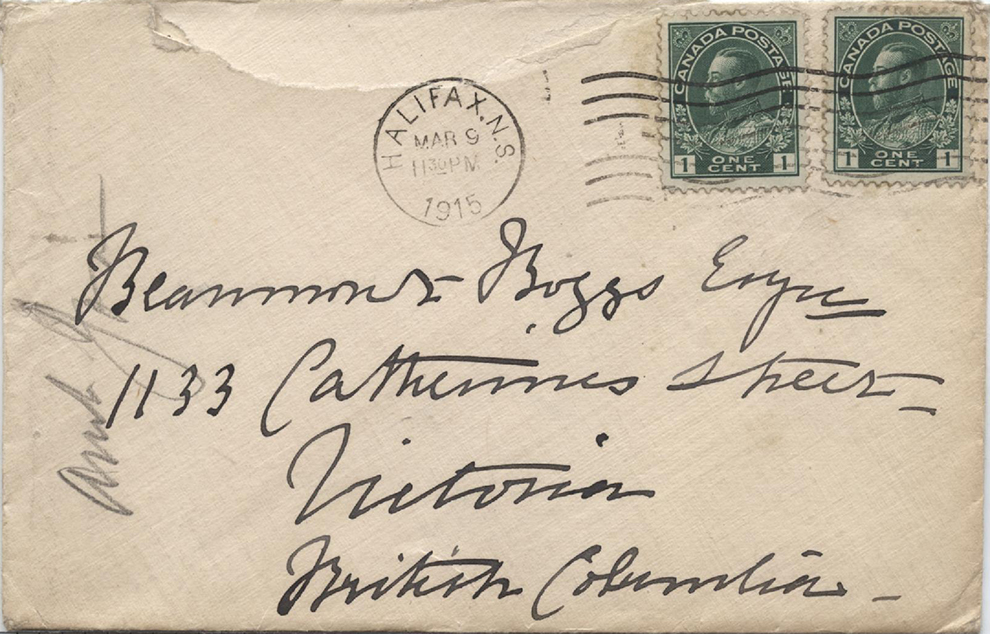 HALIFAX, N.S.
MAR 9
11 30 PM
1915
CANADA POSTAGE
1 ONE CENT 1
CANADA POSTAGE
1 ONE CENT 1
Beaumont Boggs Esqre
1133 Catherines Street
Victoria
British Columbia